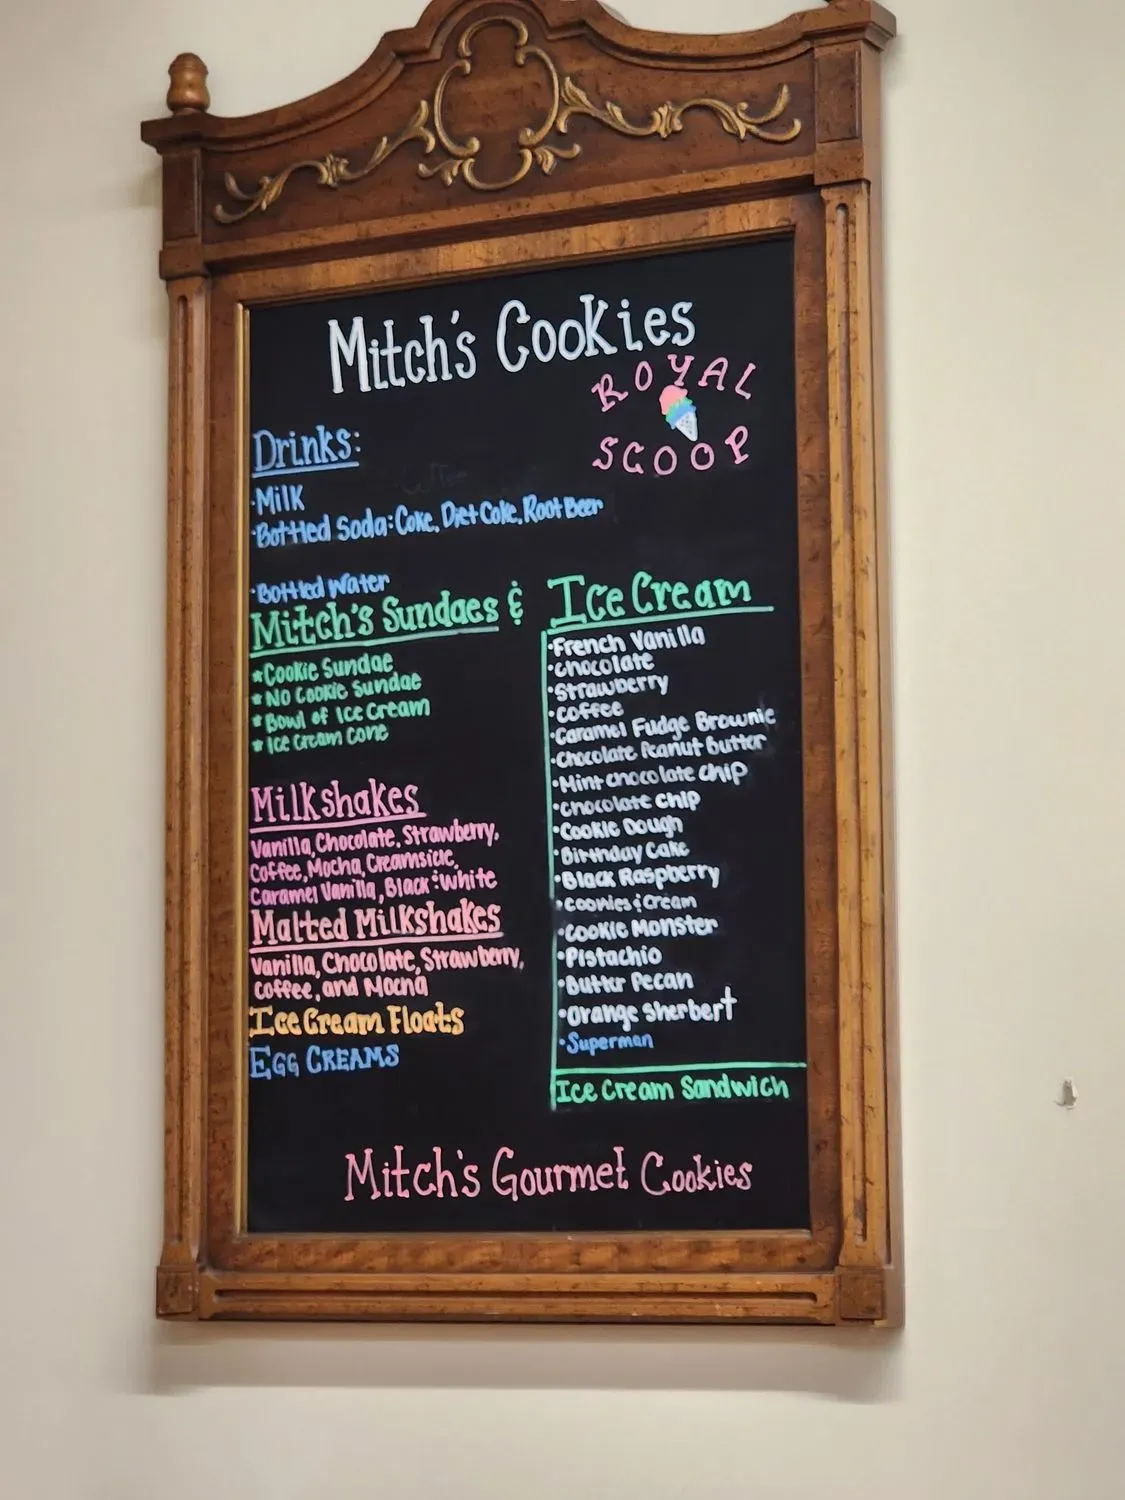 Mitch's Cookies
ROYAL
SCOOP
Drinks:
·Milk
·Bottled Soda: Coke, Diet Coke, Root Beer
·Bottled Water
Mitch's Sundaes &
*Cookie Sundae
*No Cookie Sundae
*Bowl of Ice Cream
*Ice Cream Cone
Milkshakes
Vanilla, Chocolate, Strawberry,
Coffee, Mocha, Creamsicle,
Caramel Vanilla, Black & White
Malted Milkshakes
Vanilla, Chocolate, Strawberry,
Coffee, and Mocha
Ice Cream Floats
EGG CREAMS
Ice Cream
·French Vanilla
·Chocolate
·Strawberry
·Coffee
·Caramel Fudge Brownie
·Chocolate Peanut Butter
·Mint chocolate chip
·Chocolate chip
·Cookie Dough
·Birthday Cake
·Black Raspberry
·Cookies & Cream
·Cookie Monster
·Pistachio
·Butter Pecan
·Orange Sherbert
·Superman
Ice Cream Sandwich
Mitch's Gourmet Cookies